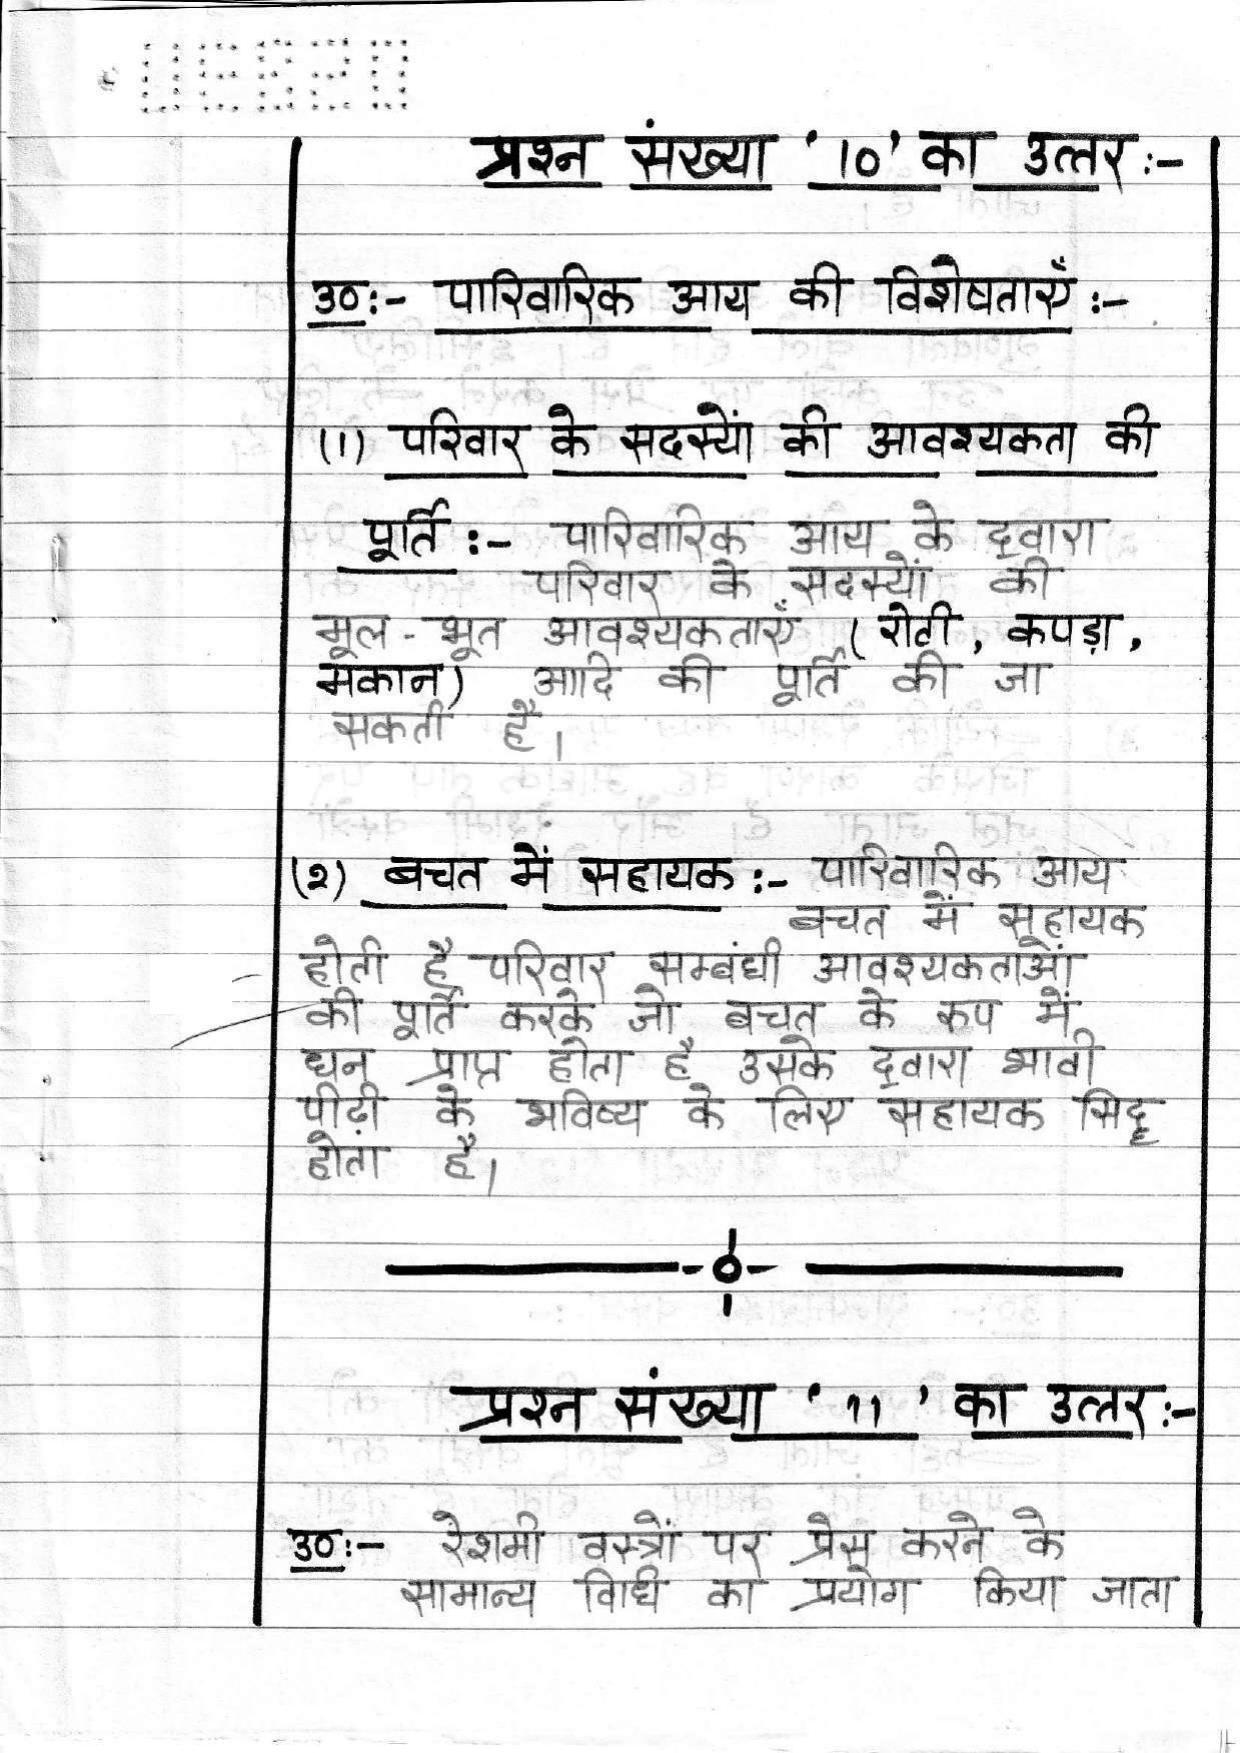 प्रश्न संख्या '10' का उत्तर :-
उ० :- पारिवारिक आय की विशेषताएँ :-
(1) परिवार के सदस्यों की आवश्यकता की
पूर्ति :- पारिवारिक आय के द्वारा
परिवार के सदस्यों की
मूल - भूत आवश्यकताएँ (रोटी, कपड़ा,
मकान) आदि की पूर्ति की जा
सकती है।
(2) बचत में सहायक :- पारिवारिक आय
बचत में सहायक
होती है परिवार सम्बंधी आवश्यकताओं
की पूर्ति करके जो बचत के रूप में
धन प्राप्त होता है उसके द्वारा भावी
पीढ़ी के भविष्य के लिए सहायक सिद्ध
होता है।
प्रश्न संख्या '11' का उत्तर :-
उ० :- रेशमी वस्त्रों पर प्रेस करने के
सामान्य विधि का प्रयोग किया जाता